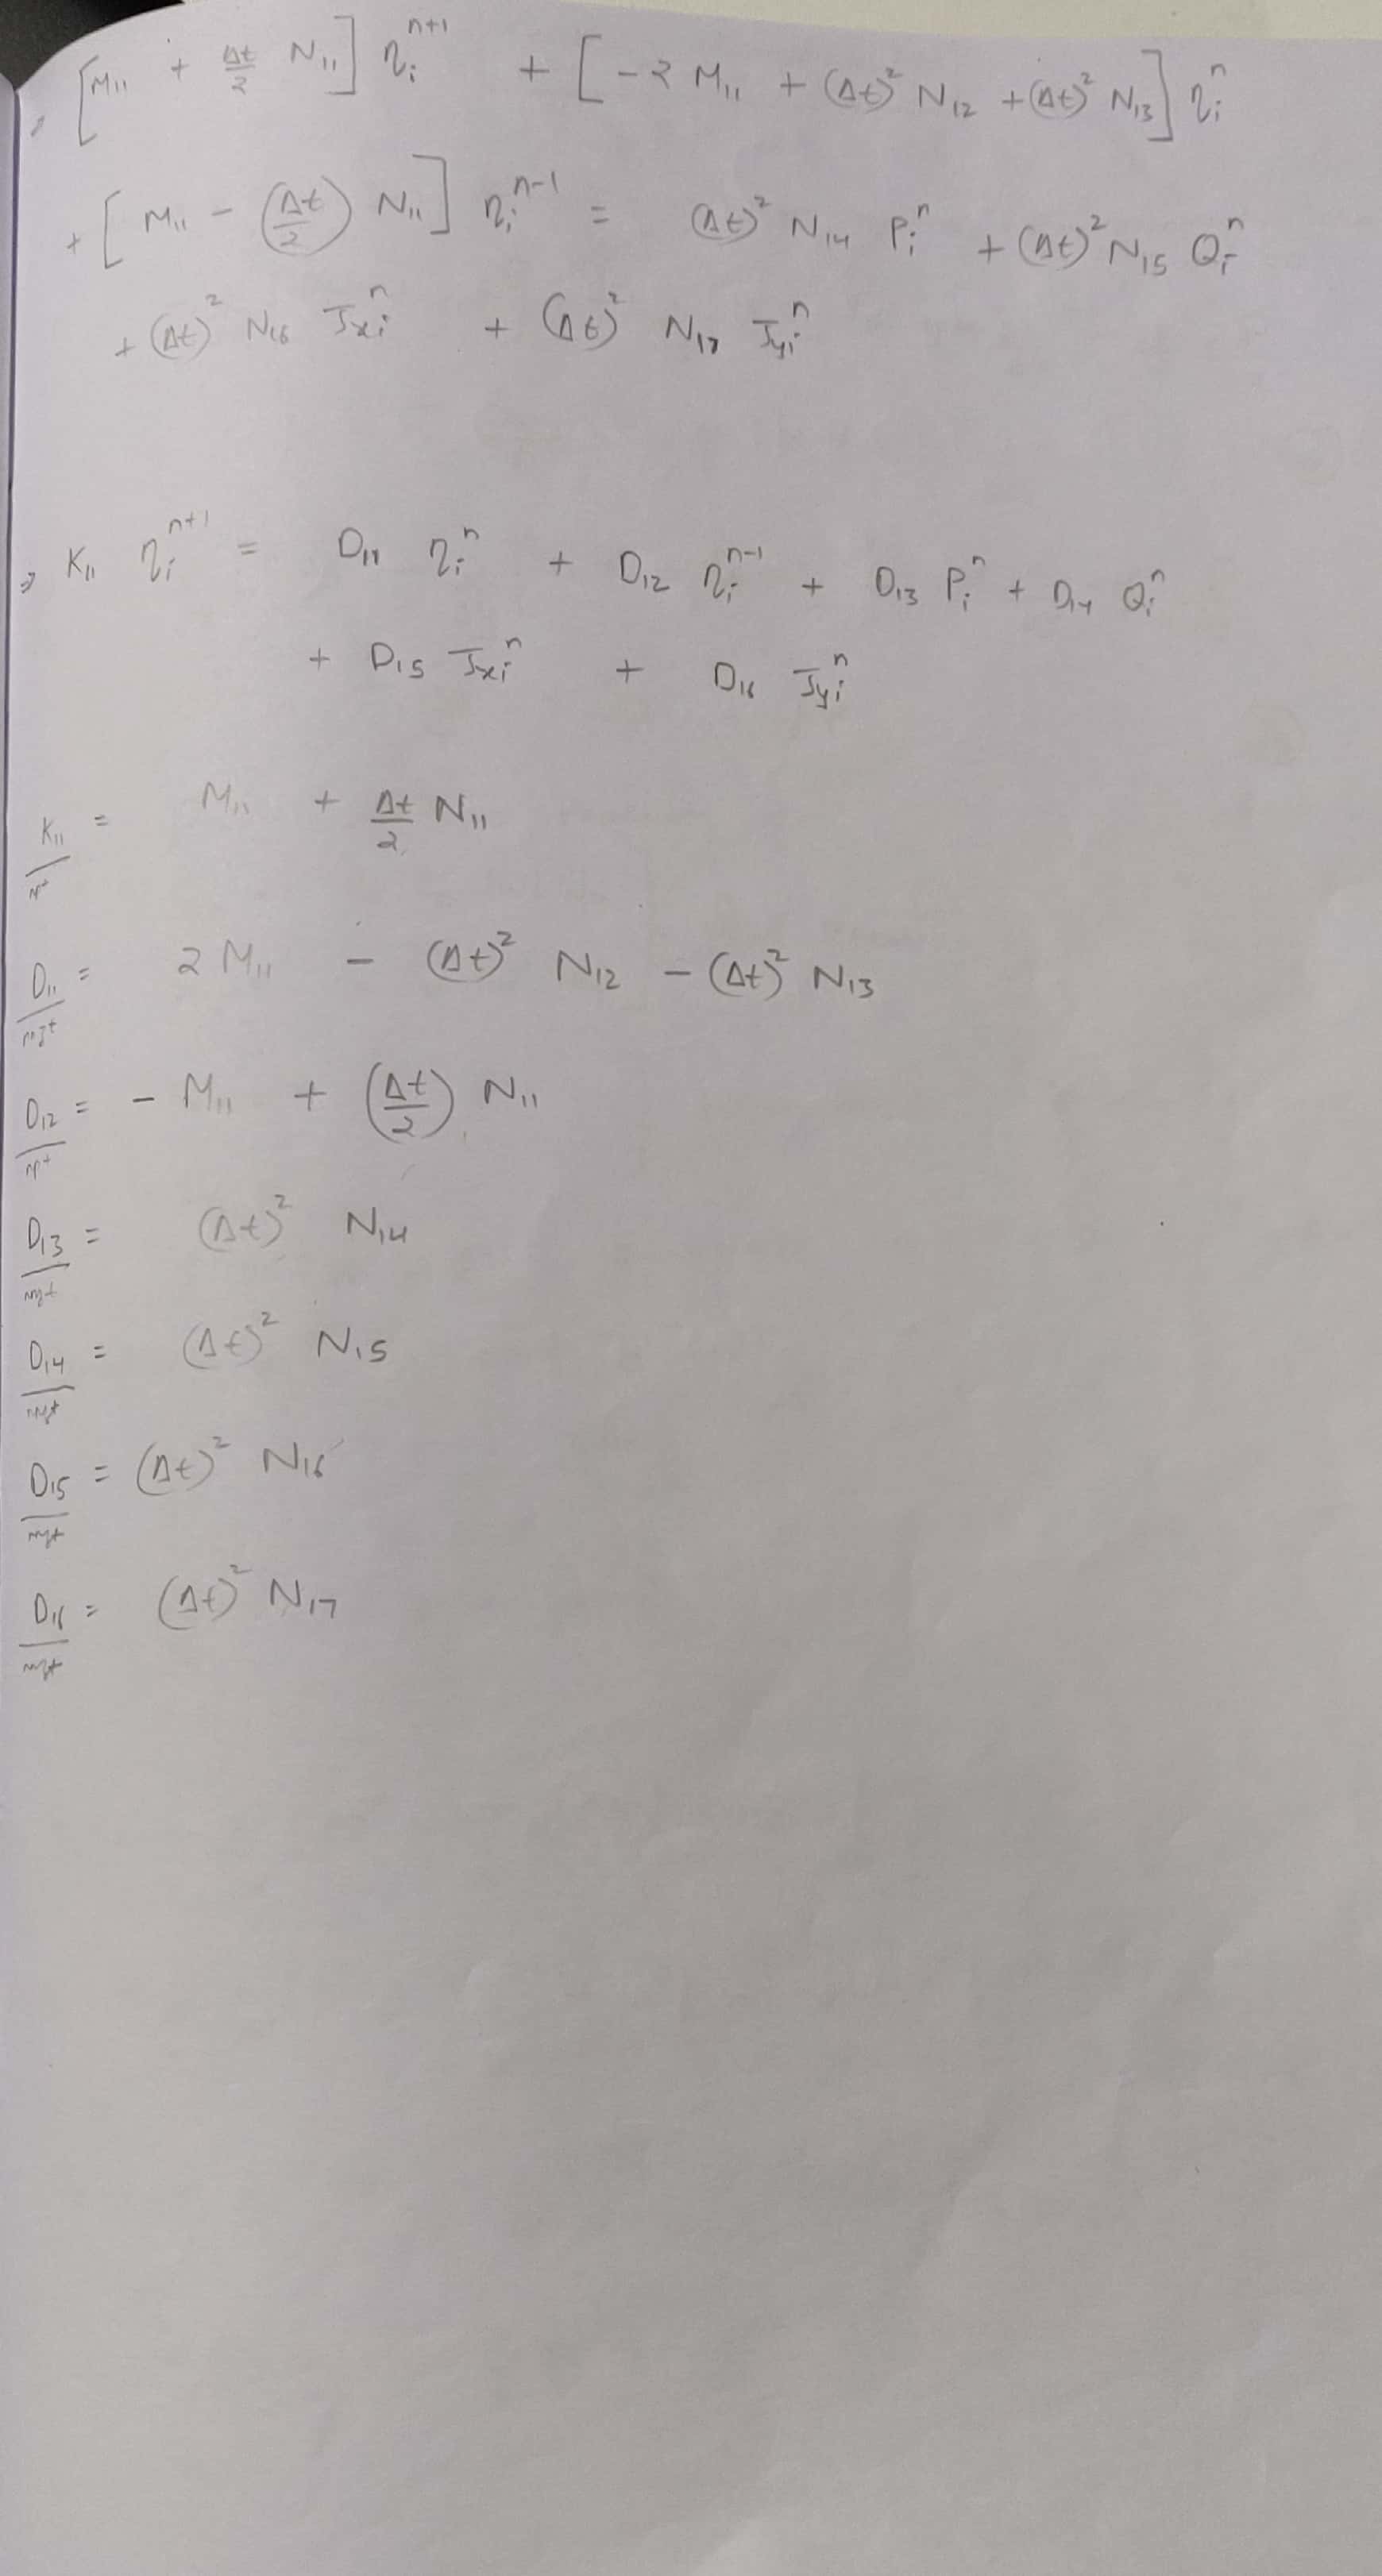 [M₁₁ + Δt/2 N₁₁] η_i^{n+1} + [-2 M₁₁ + (Δt)² N₁₂ + (Δt)² N₁₃] η_i^n
+ [M₁₁ - (Δt/2) N₁₁] η_i^{n-1} = (Δt)² N₁₄ P_i^n + (Δt)² N₁₅ Q_i^n
+ (Δt)² N₁₆ J_{xi}^n + (Δt)² N₁₇ J_{yi}^n
⇒ K₁₁ η_i^{n+1} = D₁₁ η_i^n + D₁₂ η_i^{n-1} + D₁₃ P_i^n + D₁₄ Q_i^n
+ D₁₅ J_{xi}^n + D₁₆ J_{yi}^n
K₁₁ = M₁₁ + Δt/2 N₁₁
D₁₁ = 2 M₁₁ - (Δt)² N₁₂ - (Δt)² N₁₃
D₁₂ = - M₁₁ + (Δt/2) N₁₁
D₁₃ = (Δt)² N₁₄
D₁₄ = (Δt)² N₁₅
D₁₅ = (Δt)² N₁₆
D₁₆ = (Δt)² N₁₇